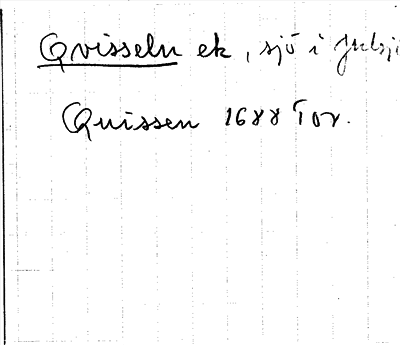 Qvisseln ek, sjö i
Quissen 1688 Tor.